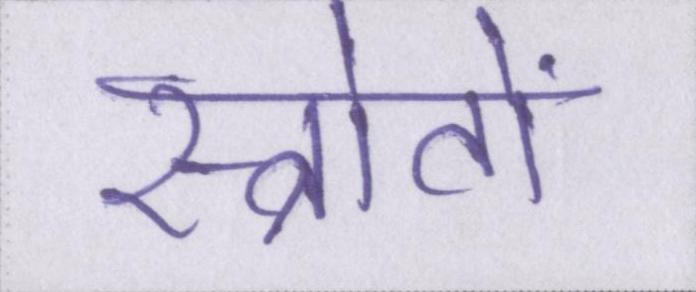 स्त्रोतों